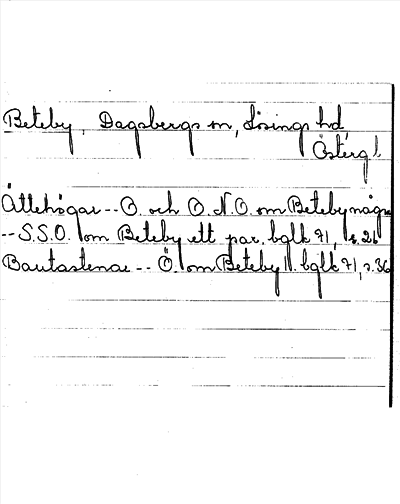 Beteby, Dagsbergs sn, Lösings hd,
Österg.
Ättehögar -- O. och O.N.O. om Beteby några
-- S.S.O. om Beteby ett par. bglk 71, s. 26
Bautastenar -- Ö. om Beteby bglk 71, s. 36